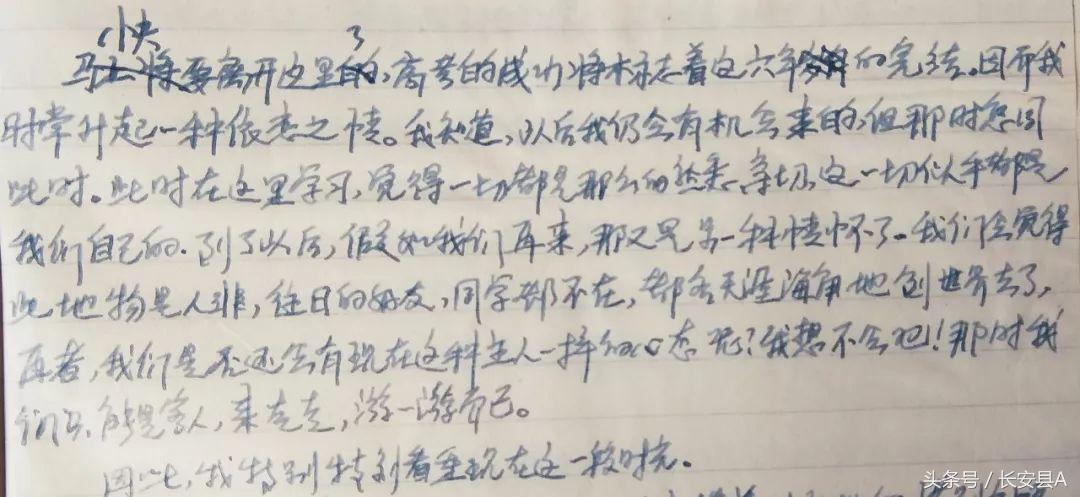 小央
马上将要离开这里了，高考的成功将标志着这六年的完结。因而我
时常升起一种依恋之情。我知道，以后我仍会有机会来的，但那时怎同
此时。此时在这里学习，觉得一切都是那么的熟悉、亲切，这一切似乎都是
我们自己的。到了以后，假如我们再来，那又是另一种情怀了。我们会觉得
此地物是人非，往日的好友，同学都不在，都各天涯海角地创世界去了，
再者，我们是否还会有现在这种主人一样的心态呢？我想不会吧！那时我
们只能是客人，来走走，游一游而已。
因此，我特别特别看重现在这一段时光。
头条号／长安县A